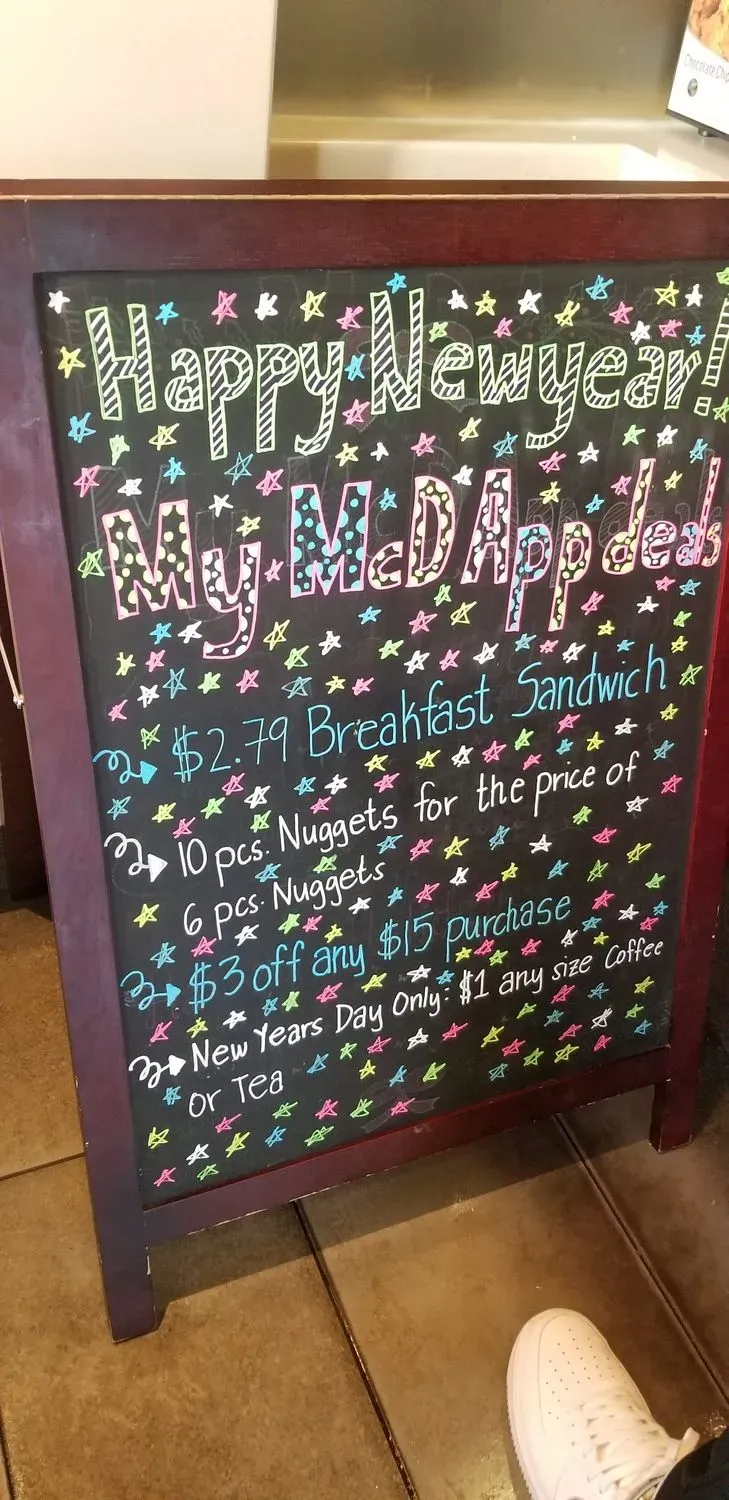 Chocolate Chip
Happy Newyear!
My McD App deals
$2.79 Breakfast Sandwich
10 pcs. Nuggets for the price of
6 pcs. Nuggets
$3 off any $15 purchase
New Years Day Only: $1 any size Coffee
or Tea